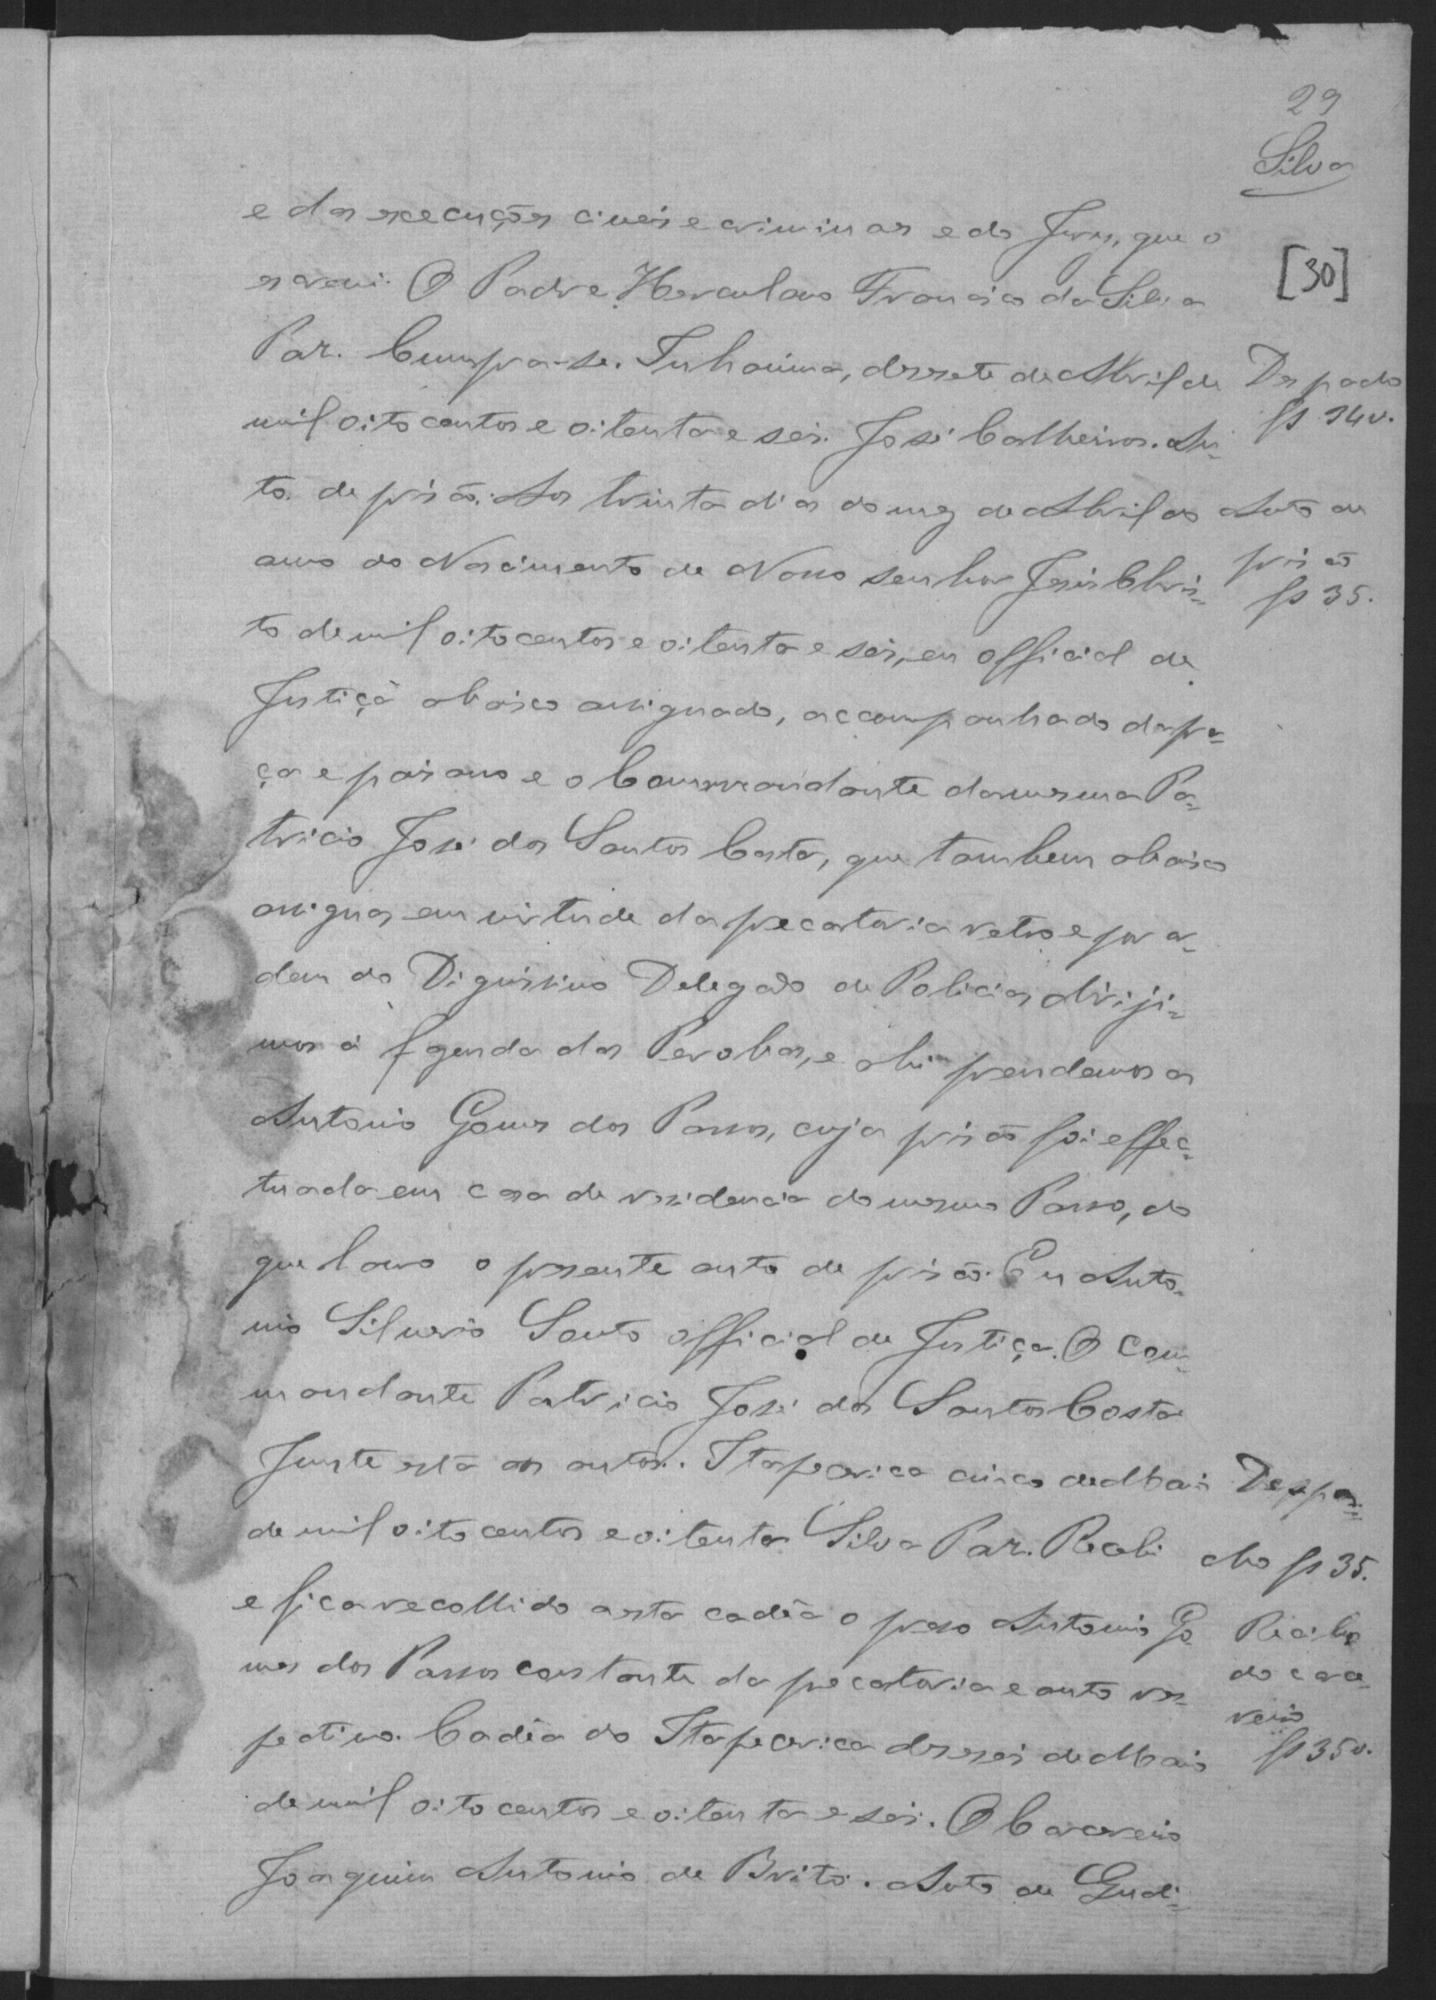 29
Silva
[30]
e das execuções civeis e criminaes e do Jury, que o
escrevi. O Padre Herculano Francisco da Silva
Paz. Cumpra-se. Inhaúma, desesete de Abril de
Despacho
fs 34v.
mil oito centos e oitenta e seis. José Calheiros. Au-
to de prisão. Aos trinta dias do mez de Abril do
Auto de
prisão
fs 35.
anno do Nascimento de Nosso Senhor Jesus Chris-
to de mil oitocentos e oitenta e seis, eu official de
Justiça abaixo assignado, accompanhado da pra-
ça e paisano e o Commandante da mesma Pa-
tricio José dos Santos Costa, que tambem abaixo
assigna, em virtude da precatoria retro e por or-
dem do Dignissimo Delegado de Policia, diriji-
mos á fazenda das Perobas, e ahi prendemos a
Antonio Gomes dos Passos, cuja prisão foi effec-
tuada em casa de residencia do mesmo Passo, do
que lavro o presente auto de prisão. Eu Anto-
nio Silverio Souto official de Justiça. O Com-
mandante Patricio José dos Santos Costa
Junte esta aos autos. Itapecerica cinco de Maio
Despa-
cho fs 35.
de mil oito centos e oitenta Silva Paz. Recebi
e fica recollido a esta cadêa o preso Antonio Go-
mes dos Passos constante da precatoria e auto res-
Recibo
do carce-
reiro
fs 35v.
pectivo. Cadêa do Itapecerica deseseis de Maio
de mil oito centos e oitenta e seis. O Carcereiro
Joaquim Antonio de Brito. Auto de Quali-